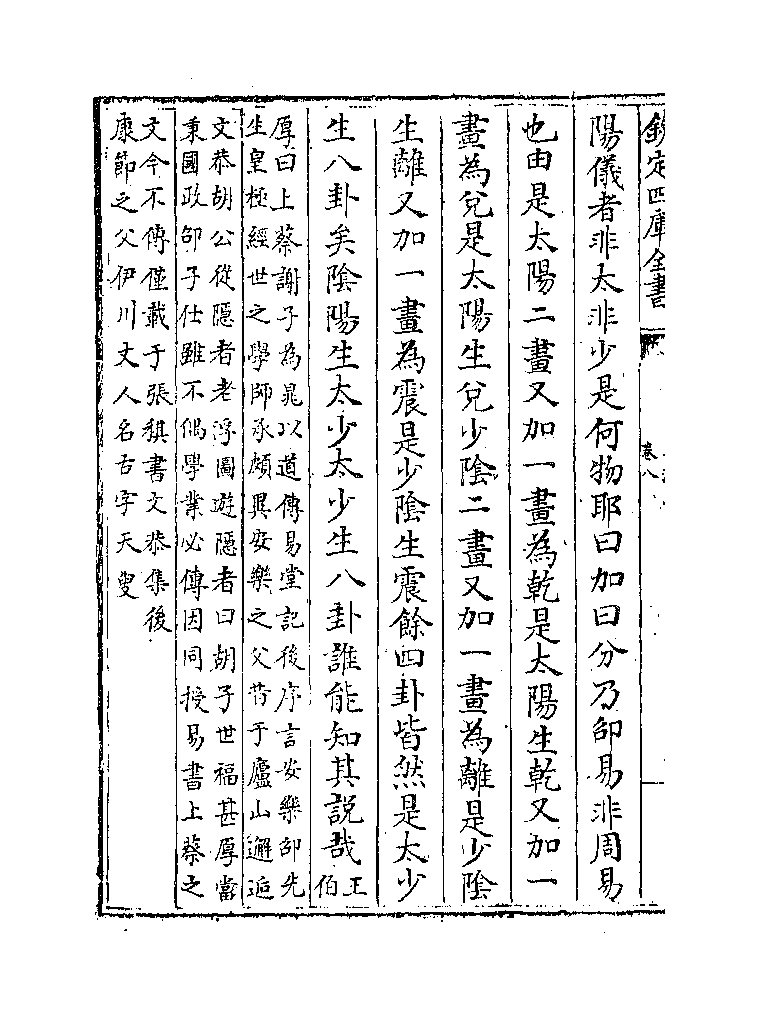 欽定四庫全書
卷八
陽儀者非太非少是何物耶曰加曰分乃邵易非周易
也由是太陽二畫又加一畫為乾是太陽生乾又加一
畫為兌是太陽生兌少陰二畫又加一畫為離是少陰
生離又加一畫為震是少陰生震餘四卦皆然是太少
生八卦矣陰陽生太少太少生八卦誰能知其説哉王
伯
厚曰上蔡謝子為晁以道傳易堂記後序言安樂邵先
生皇極經世之學師承頗異安樂之父昔于廬山邂逅
文恭胡公從隱者老浮圖遊隱者曰胡子世福甚厚當
秉國政邵子仕雖不偶學業必傳因同授易書上蔡之
文今不傳僅載于張祺書文恭集後
康節之父伊川丈人名古字天叟